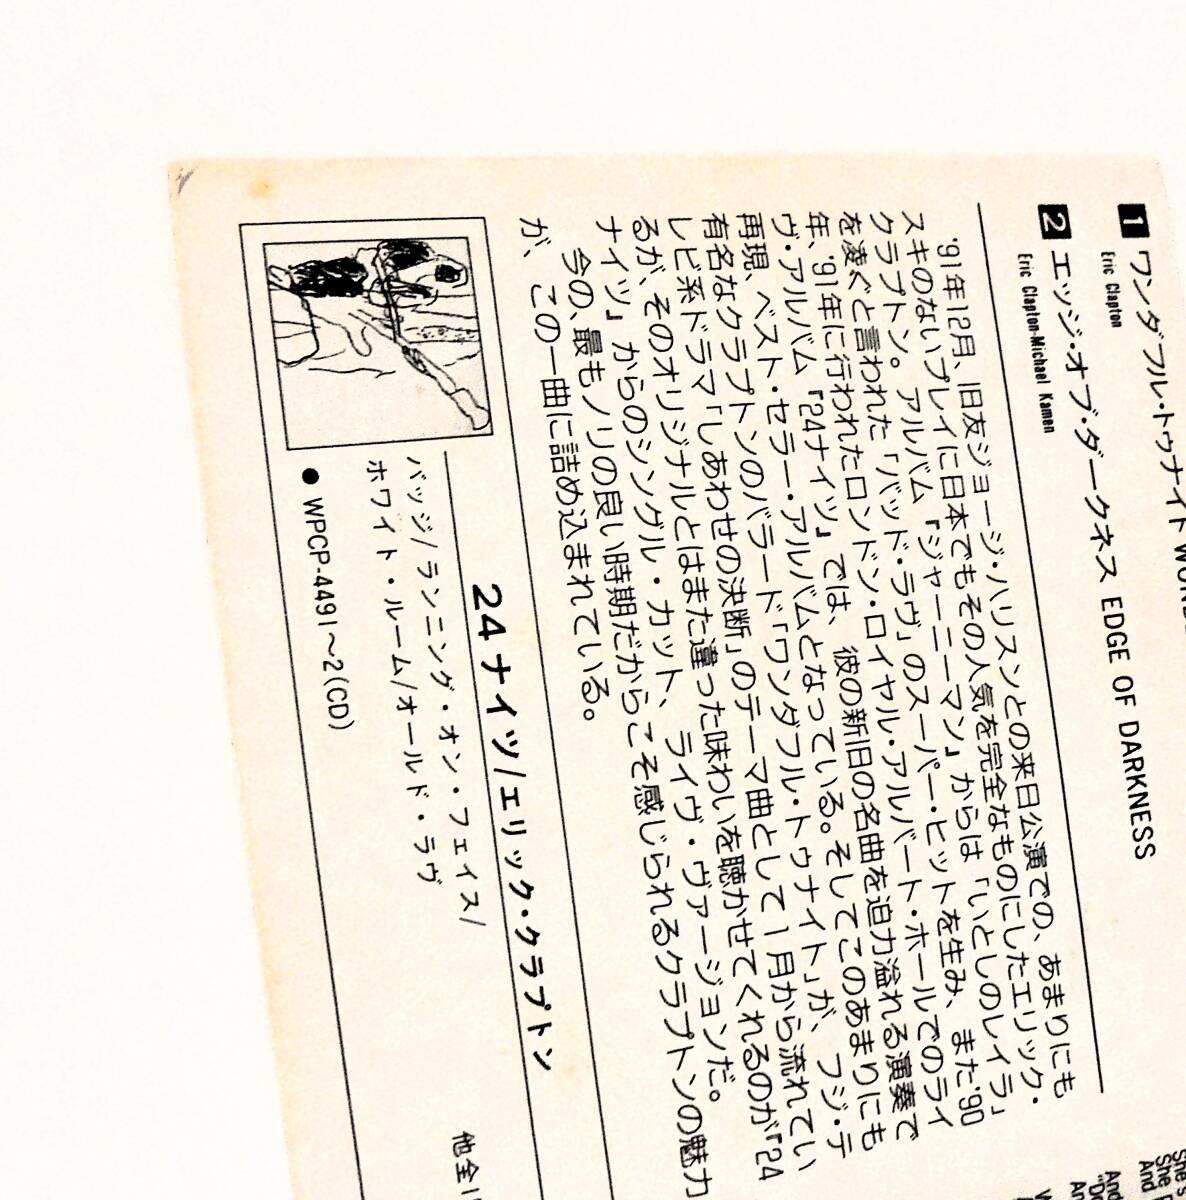 1 ワンダフル・トゥナイト
Eric Clapton
2 エッジ・オブ・ダークネス EDGE OF DARKNESS
Eric Clapton-Michael Kamen
'91年12月、旧友ジョージ・ハリスンとの来日公演での、あまりにも
スキのないプレイに日本でもその人気を完全なものにしたエリック・
クラプトン。アルバム『ジャーニーマン』からは「いとしのレイラ」
を凌ぐと言われた「バッド・ラヴ」のスーパー・ヒットを生み、また'90
年、'91年に行われたロンドン・ロイヤル・アルバート・ホールでのライ
ヴ・アルバム『24ナイツ』では、彼の新旧の名曲を迫力溢れる演奏で
再現、ベスト・セラー・アルバムとなっている。そしてこのあまりにも
有名なクラプトンのバラード「ワンダフル・トゥナイト」が、フジ・テ
レビ系ドラマ「しあわせの決断」のテーマ曲として1月から流れてい
るが、そのオリジナルとはまた違った味わいを聴かせてくれるのが『24
ナイツ』からのシングル・カット、ライヴ・ヴァージョンだ。
今の、最もノリの良い時期だからこそ感じられるクラプトンの魅力
が、この一曲に詰め込まれている。
24ナイツ/エリック・クラプトン
バッジ/ランニング・オン・フェイス/
ホワイト・ルーム/オールド・ラヴ
他全
●WPCP-4491〜2(CD)